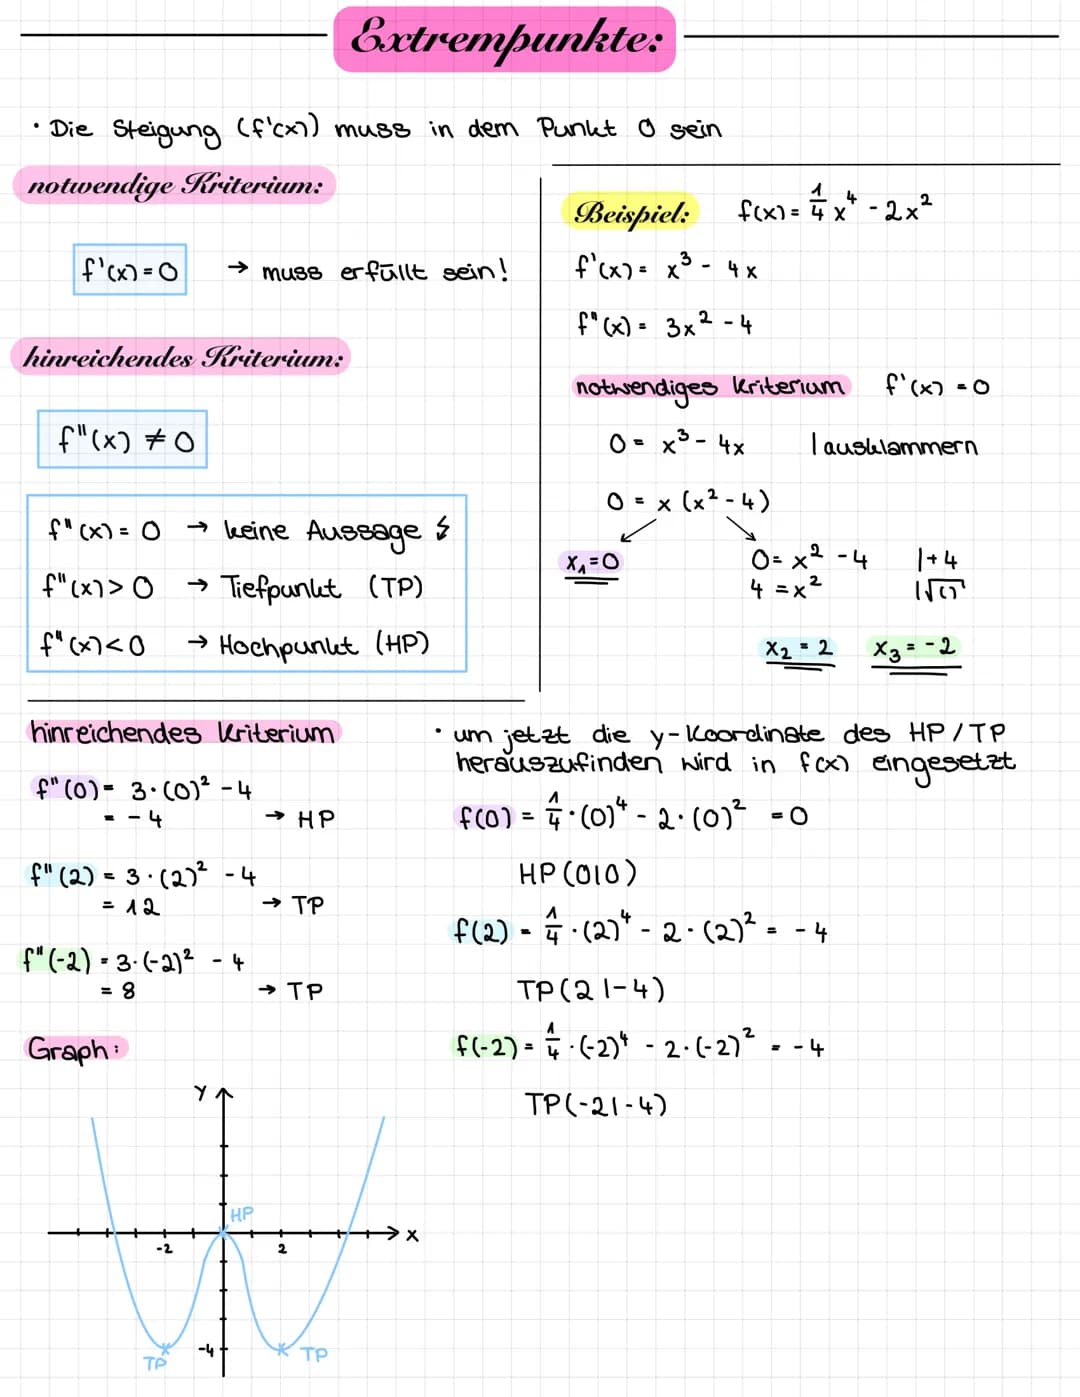 Extrempunkte:
• Die Steigung (f'(x)) muss in dem Punkt 0 sein
notwendige Kriterium:
f'(x) = 0 → muss erfüllt sein!
hinreichendes Kriterium:
f"(x) ≠ 0
f"(x) = 0 → keine Aussage ↯
f"(x) > 0 → Tiefpunkt (TP)
f"(x) < 0 → Hochpunkt (HP)
Beispiel: f(x) = 1/4 x⁴ - 2x²
f'(x) = x³ - 4x
f"(x) = 3x² - 4
notwendiges Kriterium f'(x) = 0
0 = x³ - 4x | ausklammern
0 = x (x² - 4)
x₁ = 0
0 = x² - 4 | + 4
4 = x² | √( )
x₂ = 2 x₃ = -2
hinreichendes Kriterium
f"(0) = 3·(0)² - 4
= -4 → HP
f"(2) = 3·(2)² - 4
= 12 → TP
f"(-2) = 3·(-2)² - 4
= 8 → TP
• um jetzt die y-Koordinate des HP/TP
herauszufinden wird in f(x) eingesetzt
f(0) = 1/4·(0)⁴ - 2·(0)² = 0
HP(0|0)
f(2) = 1/4·(2)⁴ - 2·(2)² = -4
TP(2|-4)
f(-2) = 1/4·(-2)⁴ - 2·(-2)² = -4
TP(-2|-4)
Graph:
y
HP
x
-2
2
-4
TP
TP